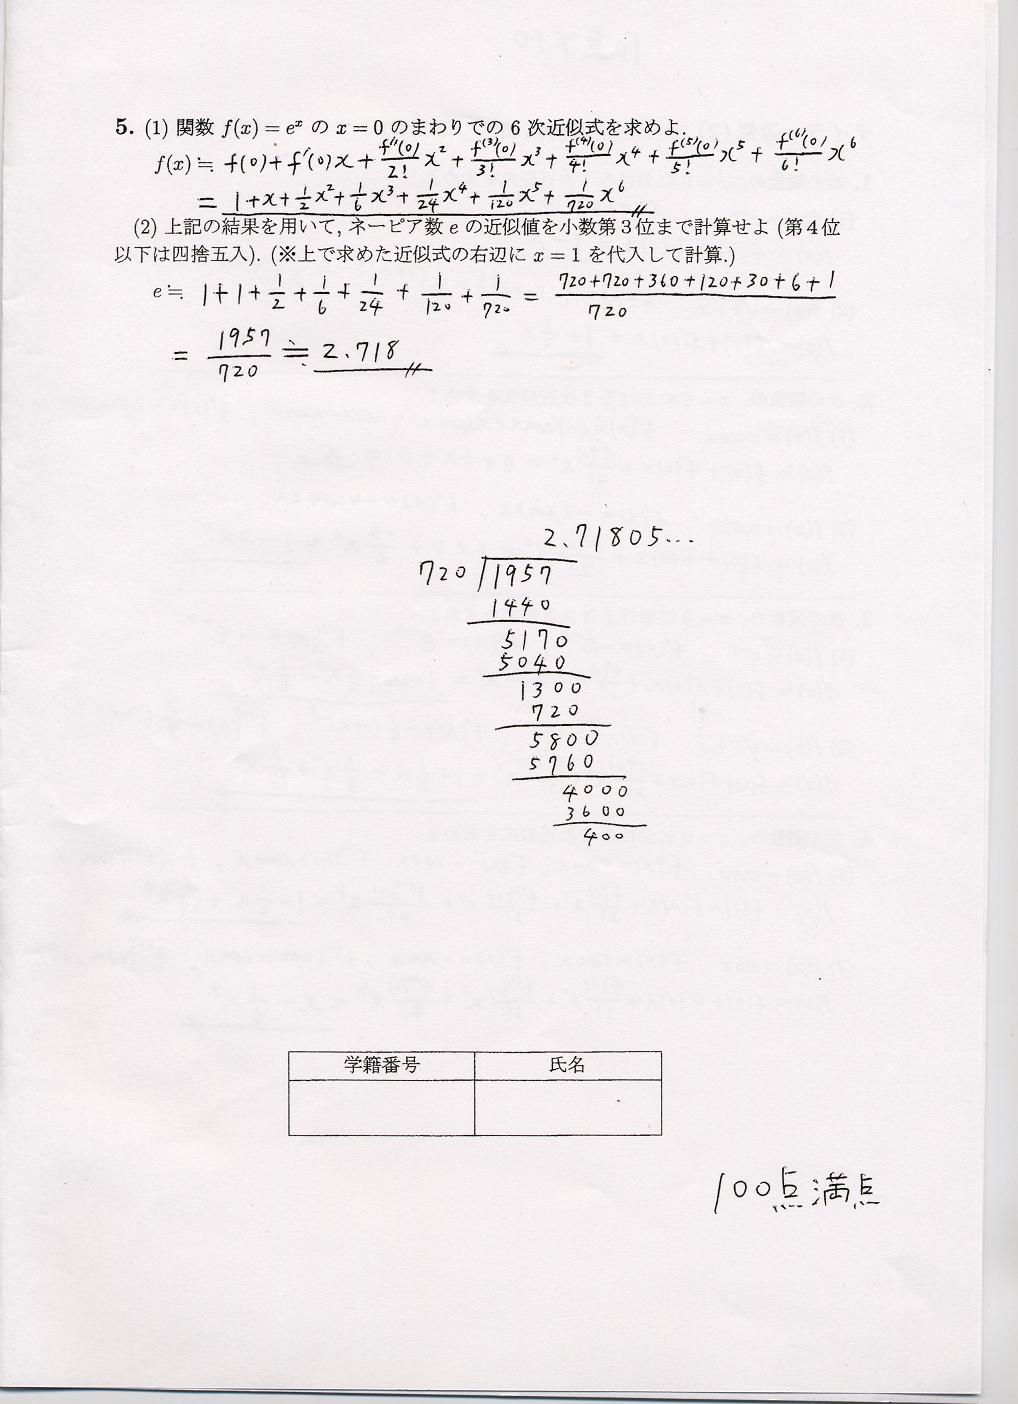 5. (1) 関数 f(x) = e^x の x = 0 のまわりでの 6 次近似式を求めよ.
f(x) ≒ f(0) + f'(0)x + f''(0)/2! x^2 + f^(3)(0)/3! x^3 + f^(4)(0)/4! x^4 + f^(5)(0)/5! x^5 + f^(6)(0)/6! x^6
= 1 + x + 1/2 x^2 + 1/6 x^3 + 1/24 x^4 + 1/120 x^5 + 1/720 x^6
(2) 上記の結果を用いて, ネーピア数 e の近似値を小数第3位まで計算せよ (第4位
以下は四捨五入). (※上で求めた近似式の右辺に x = 1 を代入して計算.)
e ≒ 1 + 1 + 1/2 + 1/6 + 1/24 + 1/120 + 1/720 = 720+720+360+120+30+6+1/720
= 1957/720 ≒ 2.718
2.71805...
720 1957
1440
5170
5040
1300
720
5800
5760
4000
3600
400
学籍番号 氏名
100点満点